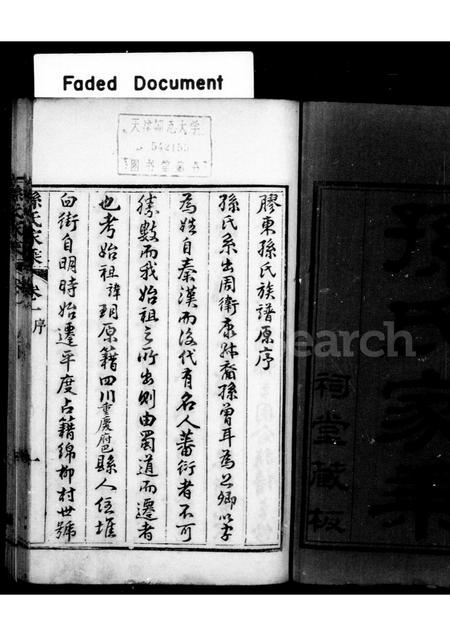 Faded Document
天津師范大學
542155
圖书舘藏书
膠東孫氏族譜原序
孫氏系出周衛康叔裔孫曾耳為上卿以字
為姓自秦漢而後代有名人蕃衍者不可
勝數而我始祖之所出則由蜀道而遷者
也考始祖諱玥原籍四川重慶府巴縣人住堆
臼街自明時始遷平度占籍綿柳村世號
孫氏家乘 卷一 序 一
孫氏家乘
祠堂藏板